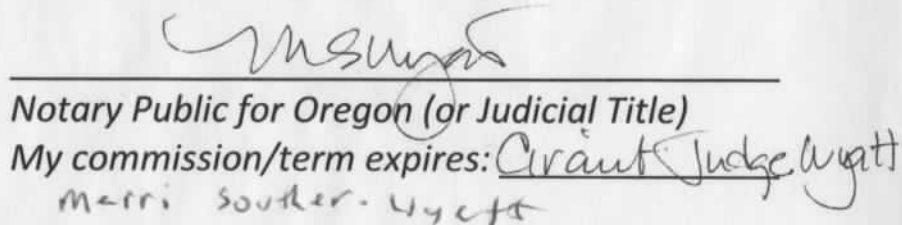 MSWyatt
Notary Public for Oregon (or Judicial Title)
My commission/term expires: Grant Judge Wyatt
Merri Souther-Wyatt